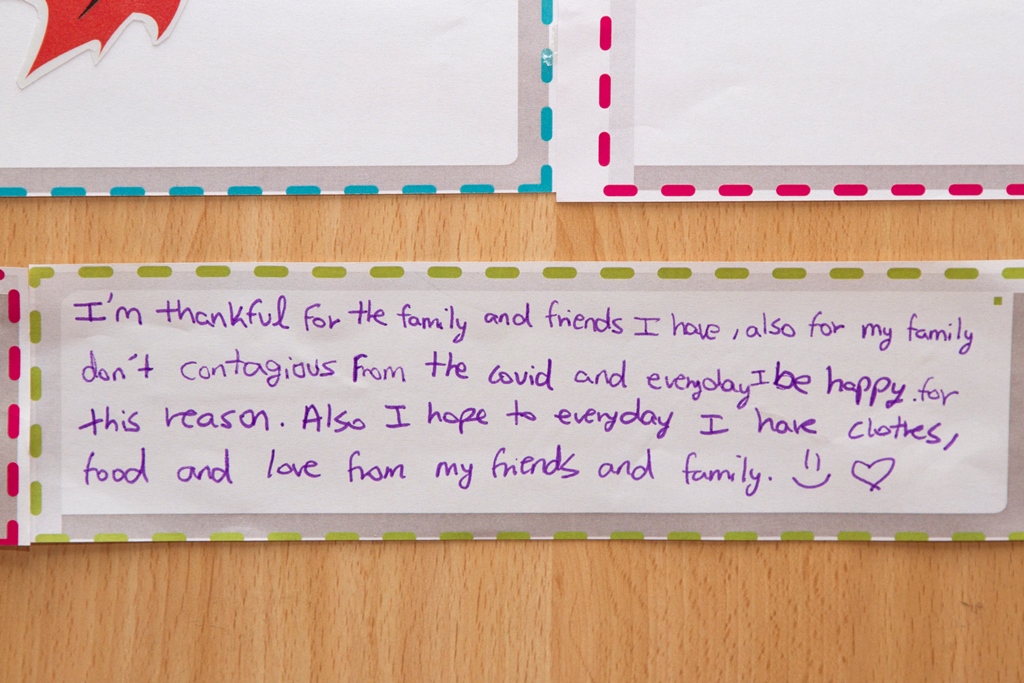 I'm thankful for the family and friends I have, also for my family
don't contagious from the covid and everyday I be happy for
this reason. Also I hope to everyday I have clothes,
food and love from my friends and family.